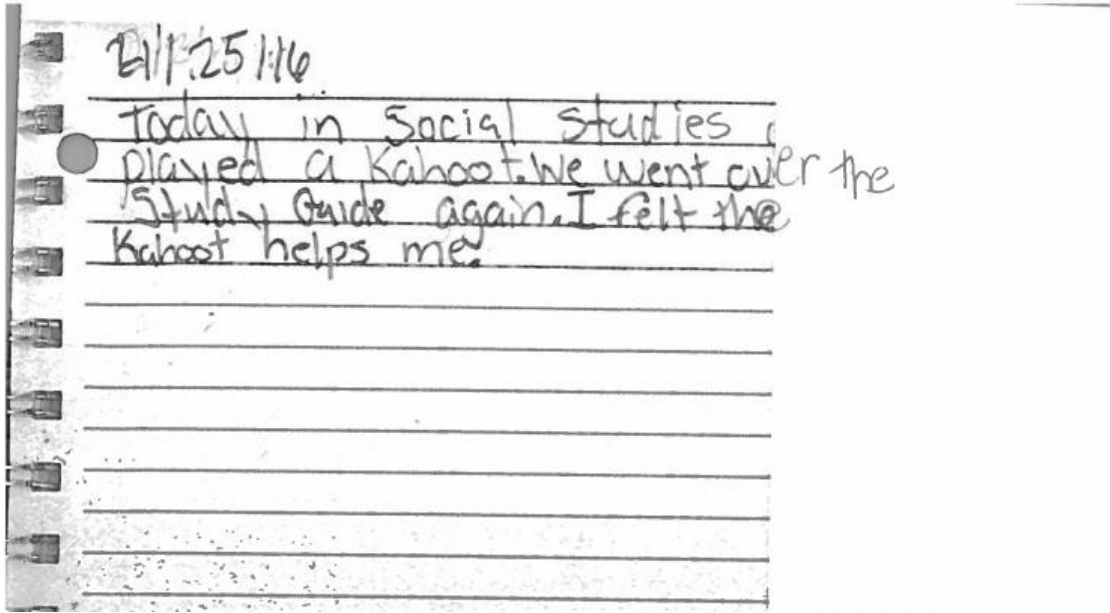 Today in Social Studies
played a Kahoot. We went over the
Study Guide again. I felt the
Kahoot helps me.